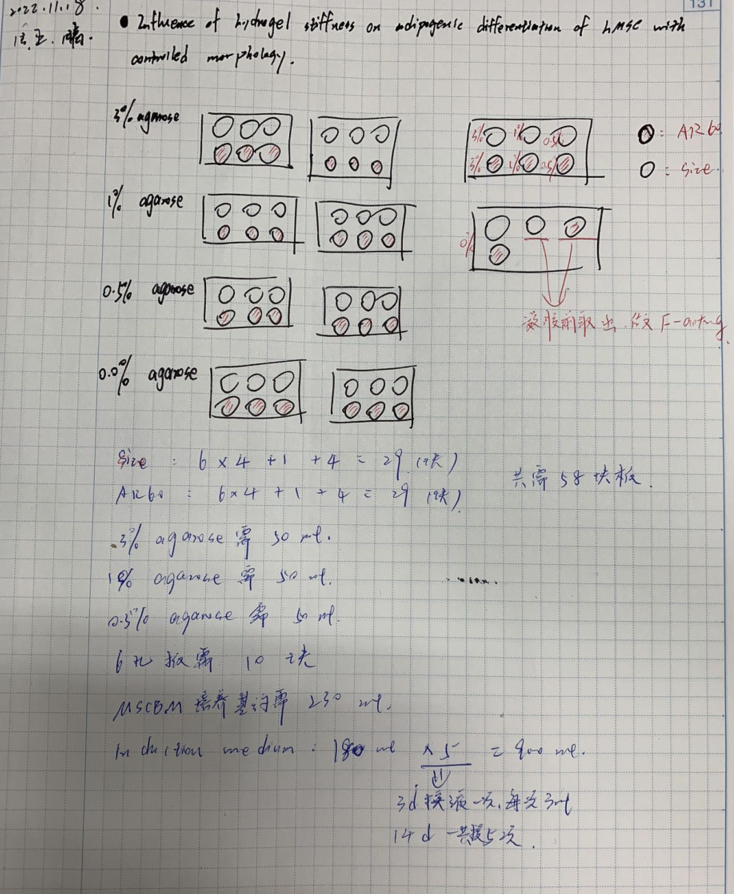 2022.11.18
131
● Influence of hydrogel stiffness on adipogenic differentiation of hMSC with
controlled morphology.
3% agarose
3% 1% 0.5%
3% 1% 0.5%
: AR
: Size
1% agarose
0%
0.5% agarose
F-acting
0.0% agarose
Size : 6 × 4 + 1 + 4 = 29 (块)
共需 58 块板.
: 6×4 + 1 + 4 = 29 (块)
3% agarose 需 50 ml.
1% agarose 需 50 ml.
0.5% agarose 需 50 ml.
6孔板需 10 块
MSCBM 培养基约需 230 ml.
Induction medium : 180 ml × 5 = 900 ml.
3d 换液一次, 每次 3ml
14 d 一共换5次.